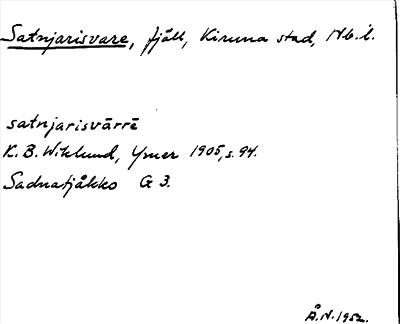 Satnjarisvare, fjäll, Kiruna stad, Nb.l.
satnjarisvārrē
K. B. Wiklund, Ymer 1905, s. 94.
Sadnatjåkko G 3.
Å.N. 1952.